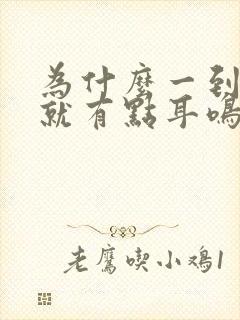 為什麼一到
就有點耳鳴
老鷹喫小鸡1